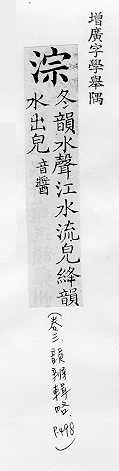 增廣字學舉隅
淙
冬韻水聲江水流皃絳韻
水出皃音醬
(卷三.韻辨輯略.P.498)